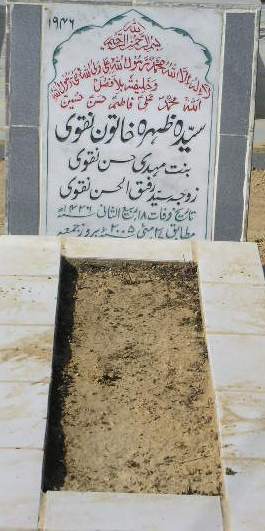 ۱۹۴۶
یا اللہ
بسم اللہ الرحمن الرحیم
لا الہ الا اللہ محمد رسول اللہ علی ولی اللہ وصی رسول اللہ
و خلیفتہ بلا فصل
اللہ محمد علی فاطمہ حسن حسین
سیدہ ظہرہ خاتون نقوی
بنت مہدی حسن نقوی
زوجہ سید رفیق الحسن نقوی
تاریخ وفات ۱۸ ربیع الثانی ۱۴۲۶ھ
مطابق ۲۷ مئی ۲۰۰۵ء بروز جمعہ